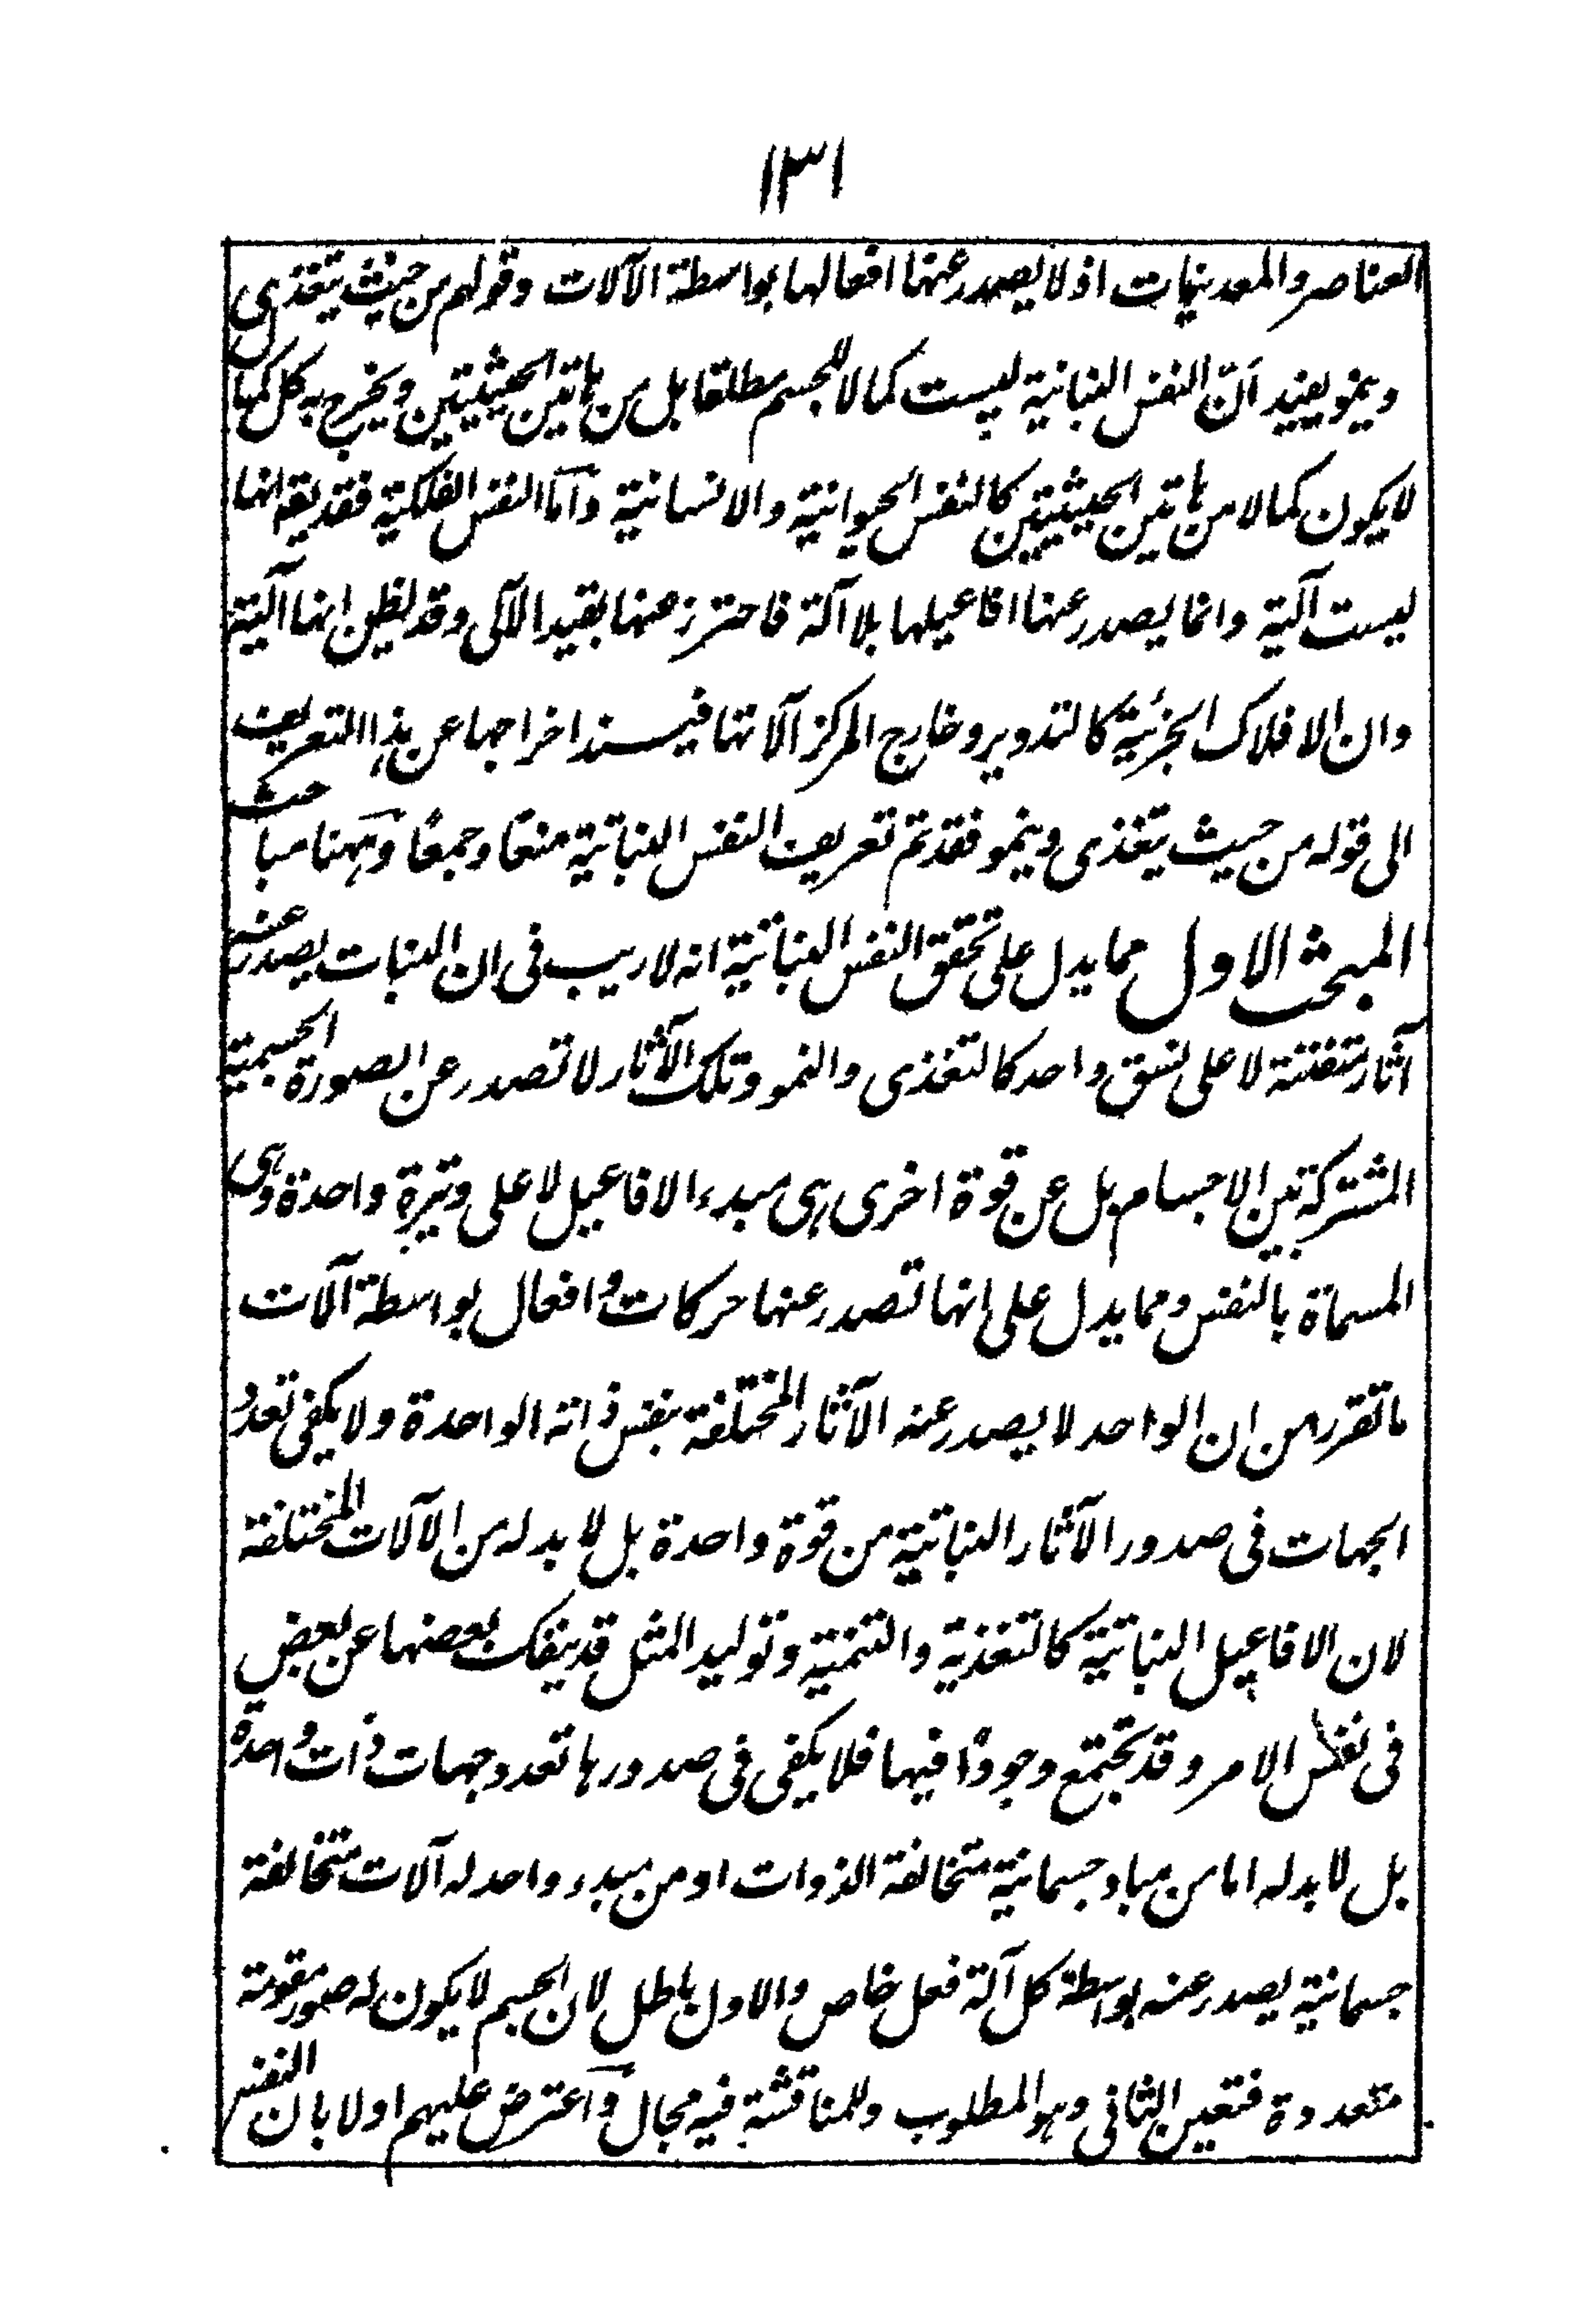 ١٣١
العناصر والمعدنيات اذ لا يصدر عنها افعالها بواسطة الآلات وقولهم من حيث يتغذى
وينمو يفيد انّ النفس النباتية ليست كمالا للجسم مطلقا بل من هاتين الحيثيتين ويخرج به كل كمال
لا يكون كمالا من هاتين الحيثيتين كالنفس الحيوانية والانسانية وامّا النفس الفلكية فقد يقع انها
ليست آلية وانما يصدر عنها افاعيلها بلا آلة فاحترز عنها بقيد الآلى وقد يظن انها آلية
وان الافلاك الجزئية كالتدوير وخارج المركز آلاتها فيسند اخراجها عن هذا التعريف
الى قوله من حيث يتغذى وينمو فقد تم تعريف النفس النباتية منعًا وجمعًا وههنا مباحث
المبحث الاول مما يدل على تحقق النفس النباتية انه لا ريب فى ان النبات يصدر عنه
آثار متفننة لا على نسق واحد كالتغذى والنمو وتلك الآثار لا تصدر عن الصورة الجسمية
المشتركة بين الاجسام بل عن قوة اخرى هى مبدء الافاعيل لا على وتيرة واحدة وهى
المسماة بالنفس ومما يدل على انها تصدر عنها حركات وافعال بواسطة آلات
ما تقرر من ان الواحد لا يصدر عنه الآثار المختلفة بنفس ذاته الواحدة ولا يكفى تعدد
الجهات فى صدور الآثار النباتية من قوة واحدة بل لا بد له من الآلات المختلفة
لان الافاعيل النباتية كالتغذية والتنمية وتوليد المثل قد ينفك بعضها عن بعض
فى نفس الامر وقد تجتمع وجودًا فيها فلا يكفى فى صدورها تعدد جهات ذات واحدة
بل لا بد له اما من مباد جسمانية متخالفة الذوات او من مبدء واحد له آلات متخالفة
جسمانية يصدر عنه بواسطة كل آلة فعل خاص والاول باطل لان الجسم لا يكون له صور مقومة
متعددة فتعين الثانى وهو المطلوب وللمناقشة فيه مجال واعترض عليهم اولا بان النفس